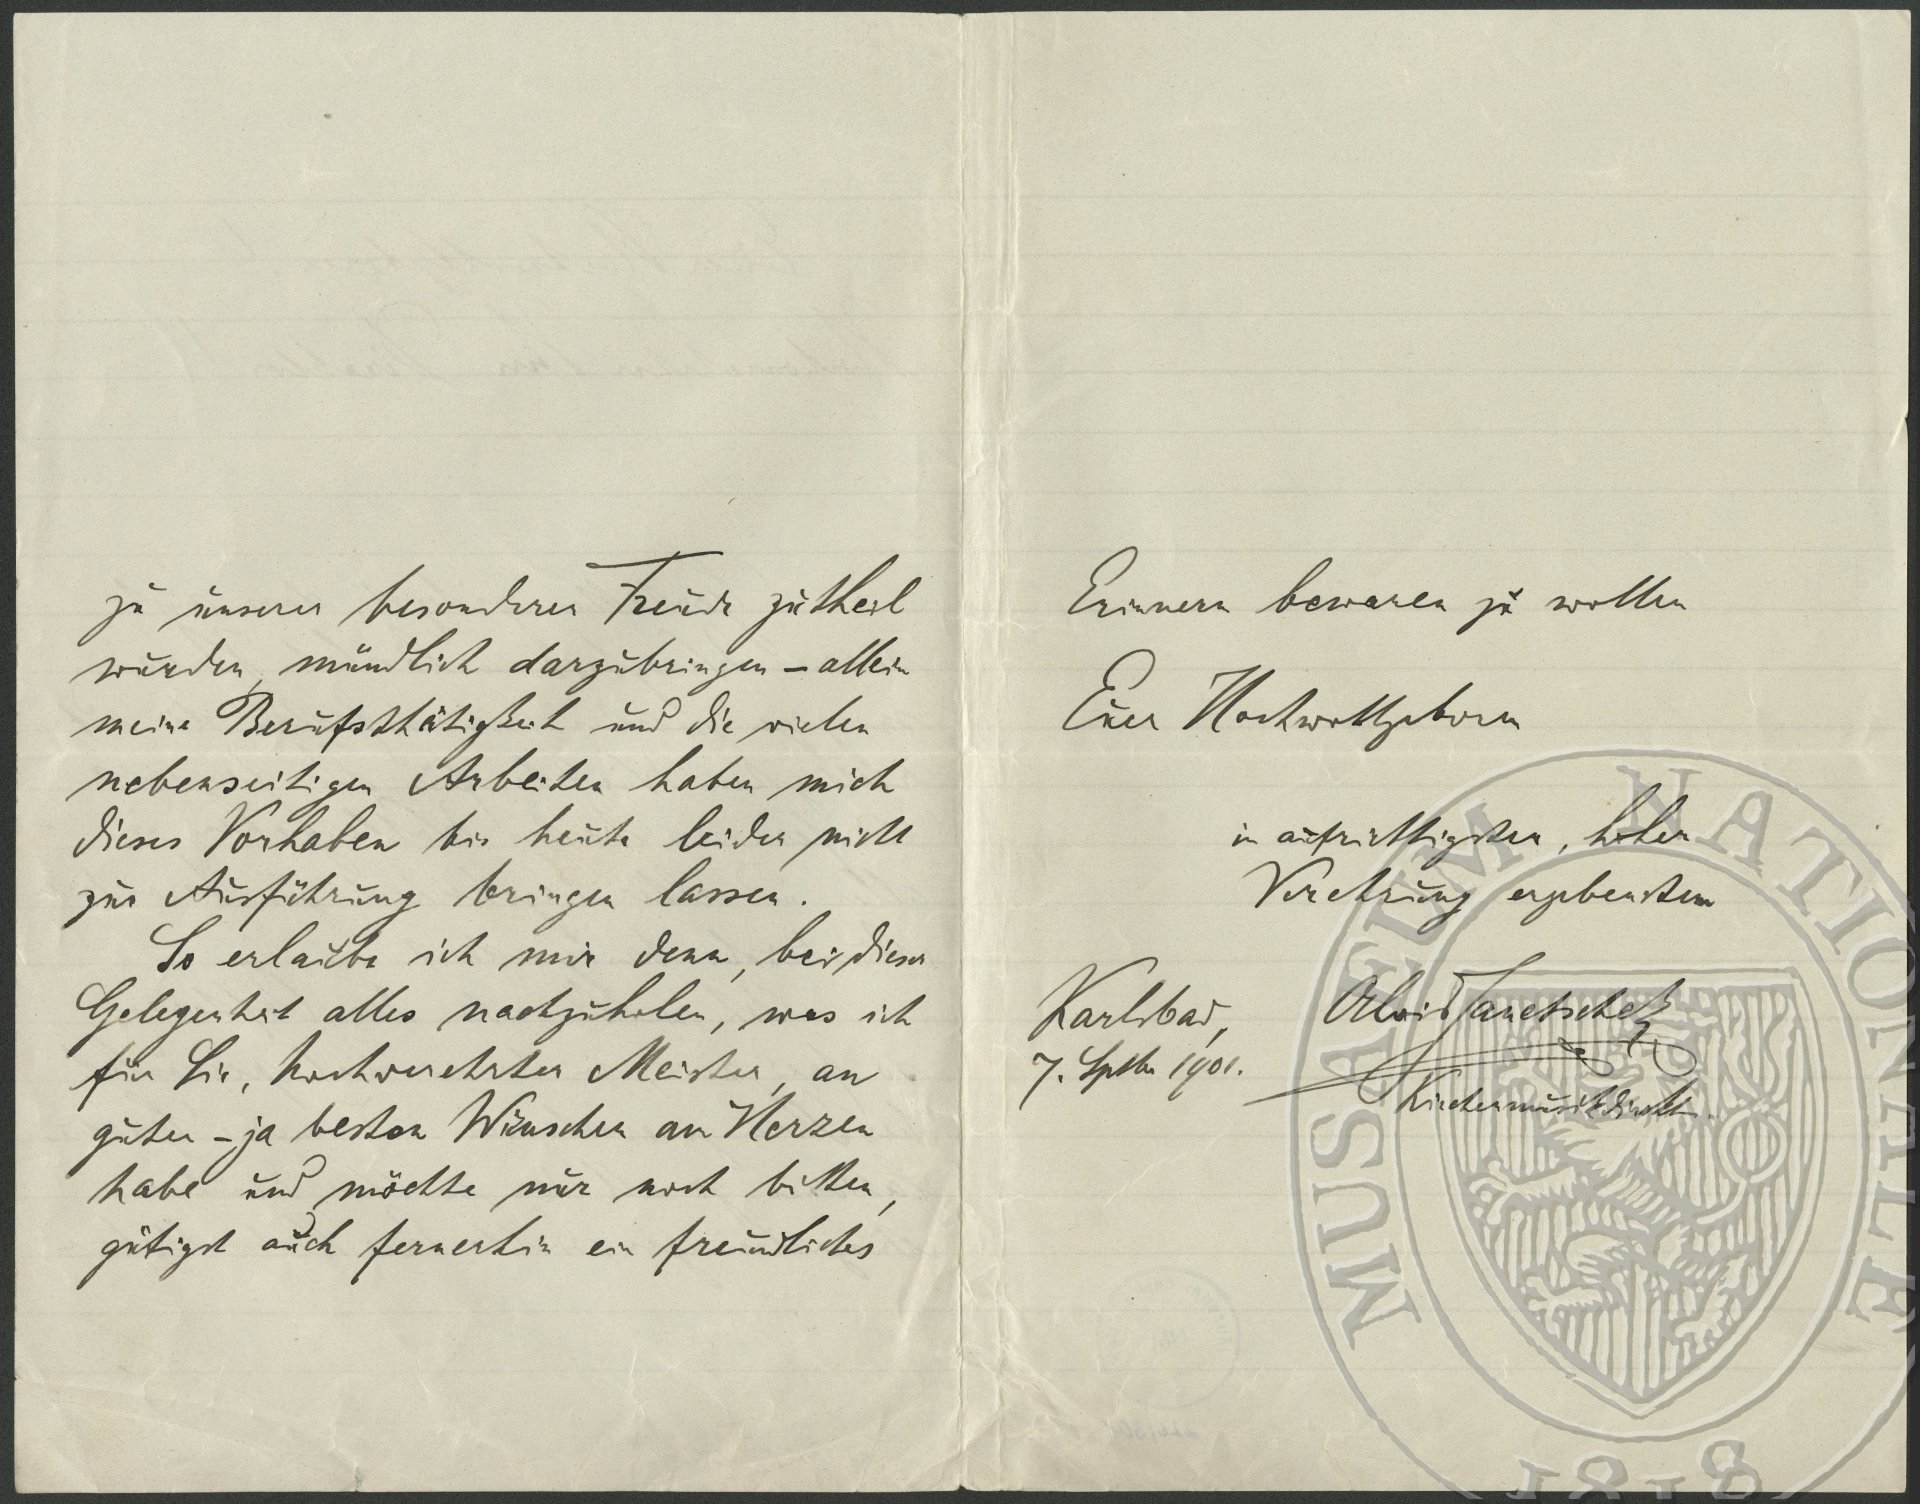 zu unserer besonderen Freude zutheil
wurden, mündlich darzubringen – allein
meine Berufsthätigkeit und die vielen
nebenseitigen Arbeiten haben mich
dieses Vorhaben bis heute leider nicht
zur Ausführung bringen lassen.
So erlaube ich mir denn, bei dieser
Gelegenheit alles nachzuholen, was ich
für Sie, hochverehrter Meister, an
guten – ja besten Wünschen am Herzen
habe und möchte nur noch bitten,
gütigst auch fernerhin ein freundliches
Erinnern bewaren zu wollen
Euer Hochwohlgeboren
in aufrichtigster, hoher
Verehrung ergebenstem
Karlsbad,
Alois Janetschek
7. Septbr 1901.
Kirchenmusikdirekt.
MUSAEUM NATIONALE
1818